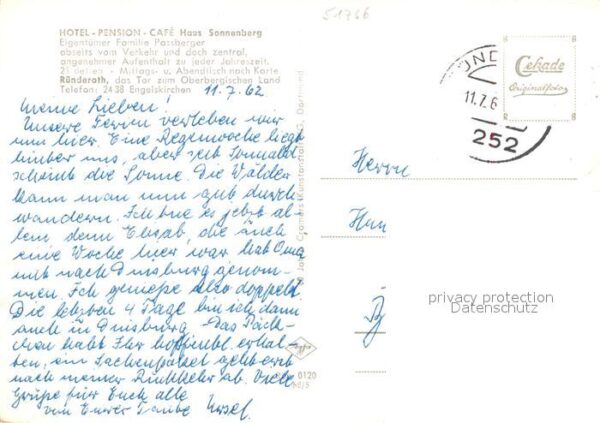 51766
HOTEL - PENSION - CAFÉ Haus Sonnenberg
Eigentümer Familie Passberger
abseits vom Verkehr und doch zentral,
angenehmer Aufenthalt zu jeder Jahreszeit.
Mittags- u. Abendtisch nach Karte
Ründeroth, das Tor zum Oberbergischen Land
Telefon: 2438 Engelskirchen
11.7.62
Meine Lieben!
Unsere Ferien verleben wir
nun hier. Eine Regenwoche liegt
hinter uns, aber seit Sonnabend
scheint die Sonne. Die Wälder
kann man nun gut durch
wandern. Ich tue es jetzt al-
lein, denn Elisab, die auch
eine Woche hier war hat Oma
mit nach Duisburg genom-
men. Ich genieße also doppelt.
Die letzten 4 Tage bin ich dann
auch in Duisburg. Das Päck-
chen habt Ihr hoffentl. erhal-
ten, ein Sachenpaket geht erst
nach meiner Rückkehr ab. Viele
Grüße für Euch alle
von Eurer Tante Ursel.
Cramers Kunstanstalt Dortmund
0120
Cekade
Originalfoto
11.7.6
252
Herrn
privacy protection
Datenschutz